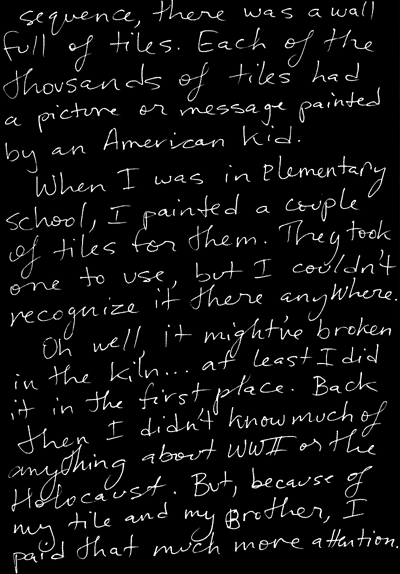 sequence, there was a wall
full of tiles. Each of the
thousands of tiles had
a picture or message painted
by an American kid.
When I was in elementary
school, I painted a couple
of tiles for them. They took
one to use, but I couldn't
recognize it there anywhere.
Oh well, it might've broken
in the kiln... at least I did
it in the first place. Back
then I didn't know much of
anything about WWII or the
Holocaust. But, because of
my tile and my Brother, I
paid that much more attention.